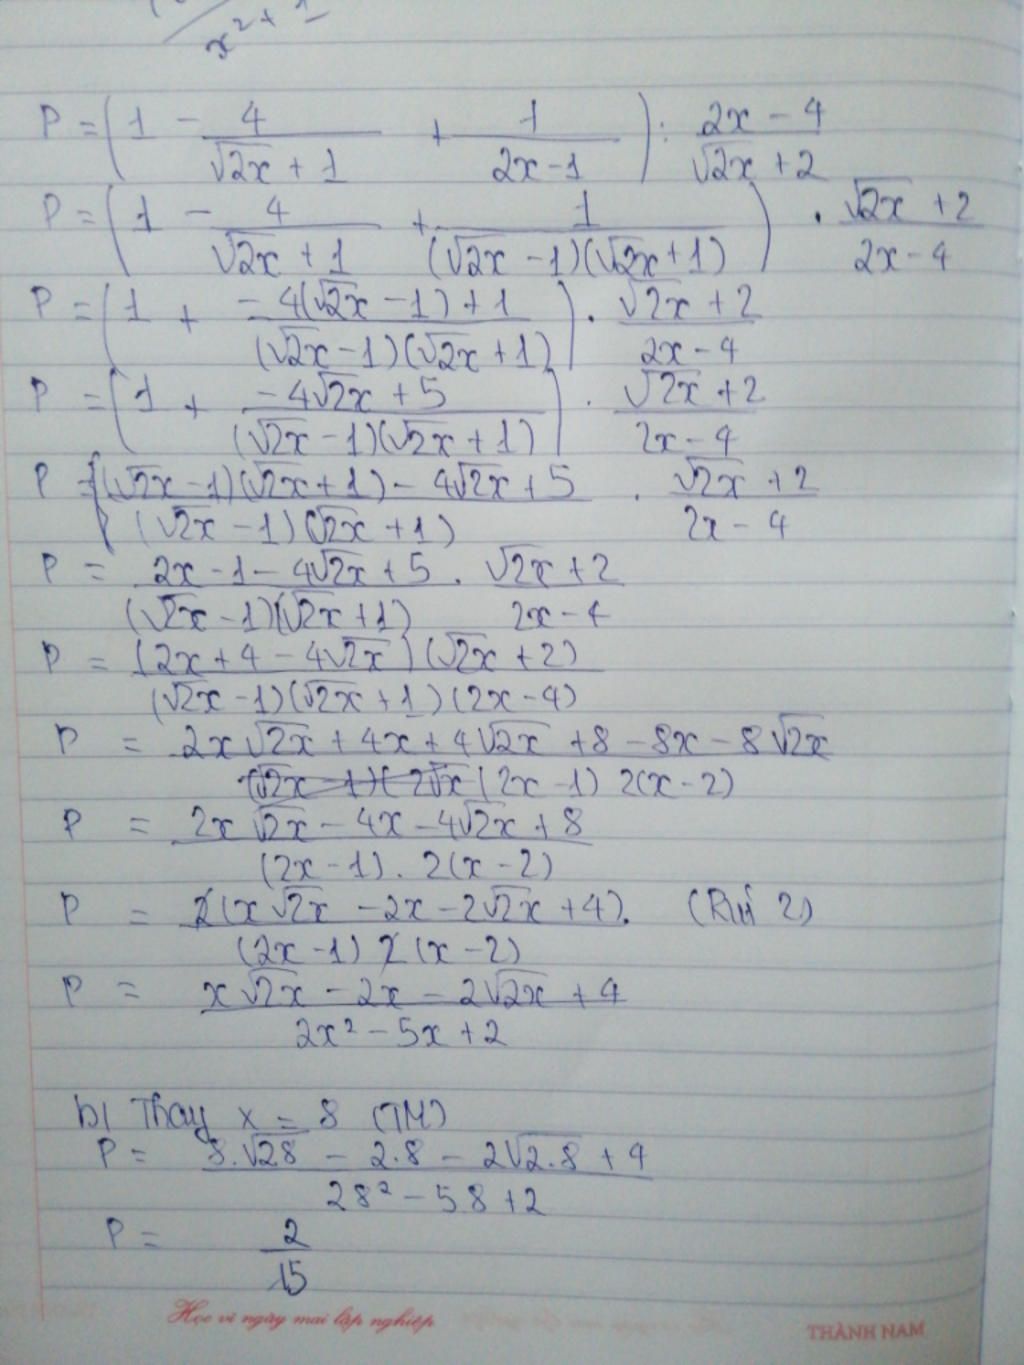 x² + 1
P = ( 1 - 4/(√2x + 1) + 1/(2x - 1) ) : (2x - 4)/(√2x + 2)
P = ( 1 - 4/(√2x + 1) + 1/((√2x - 1)(√2x + 1)) ) . (√2x + 2)/(2x - 4)
P = ( 1 + (-4(√2x - 1) + 1)/((√2x - 1)(√2x + 1)) ) . (√2x + 2)/(2x - 4)
P = ( 1 + (-4√2x + 5)/((√2x - 1)(√2x + 1)) ) . (√2x + 2)/(2x - 4)
P = ((√2x - 1)(√2x + 1) - 4√2x + 5)/((√2x - 1)(√2x + 1)) . (√2x + 2)/(2x - 4)
P = (2x - 1 - 4√2x + 5)/((√2x - 1)(√2x + 1)) . (√2x + 2)/(2x - 4)
P = ((2x + 4 - 4√2x)(√2x + 2))/((√2x - 1)(√2x + 1)(2x - 4))
P = (2x√2x + 4x + 4√2x + 8 - 8x - 8√2x)/((2x - 1) 2(x - 2))
P = (2x√2x - 4x - 4√2x + 8)/((2x - 1) . 2(x - 2))
P = (2(x√2x - 2x - 2√2x + 4))/((2x - 1) 2(x - 2)) . ( 2)
P = (x√2x - 2x - 2√2x + 4)/(2x² - 5x + 2)
b) Thay x = 8 (TM)
P = (8.√28 - 2.8 - 2√2.8 + 4)/(28² - 58 + 2)
P = 2/15
Học vì ngày mai lập nghiệp
THÀNH NAM